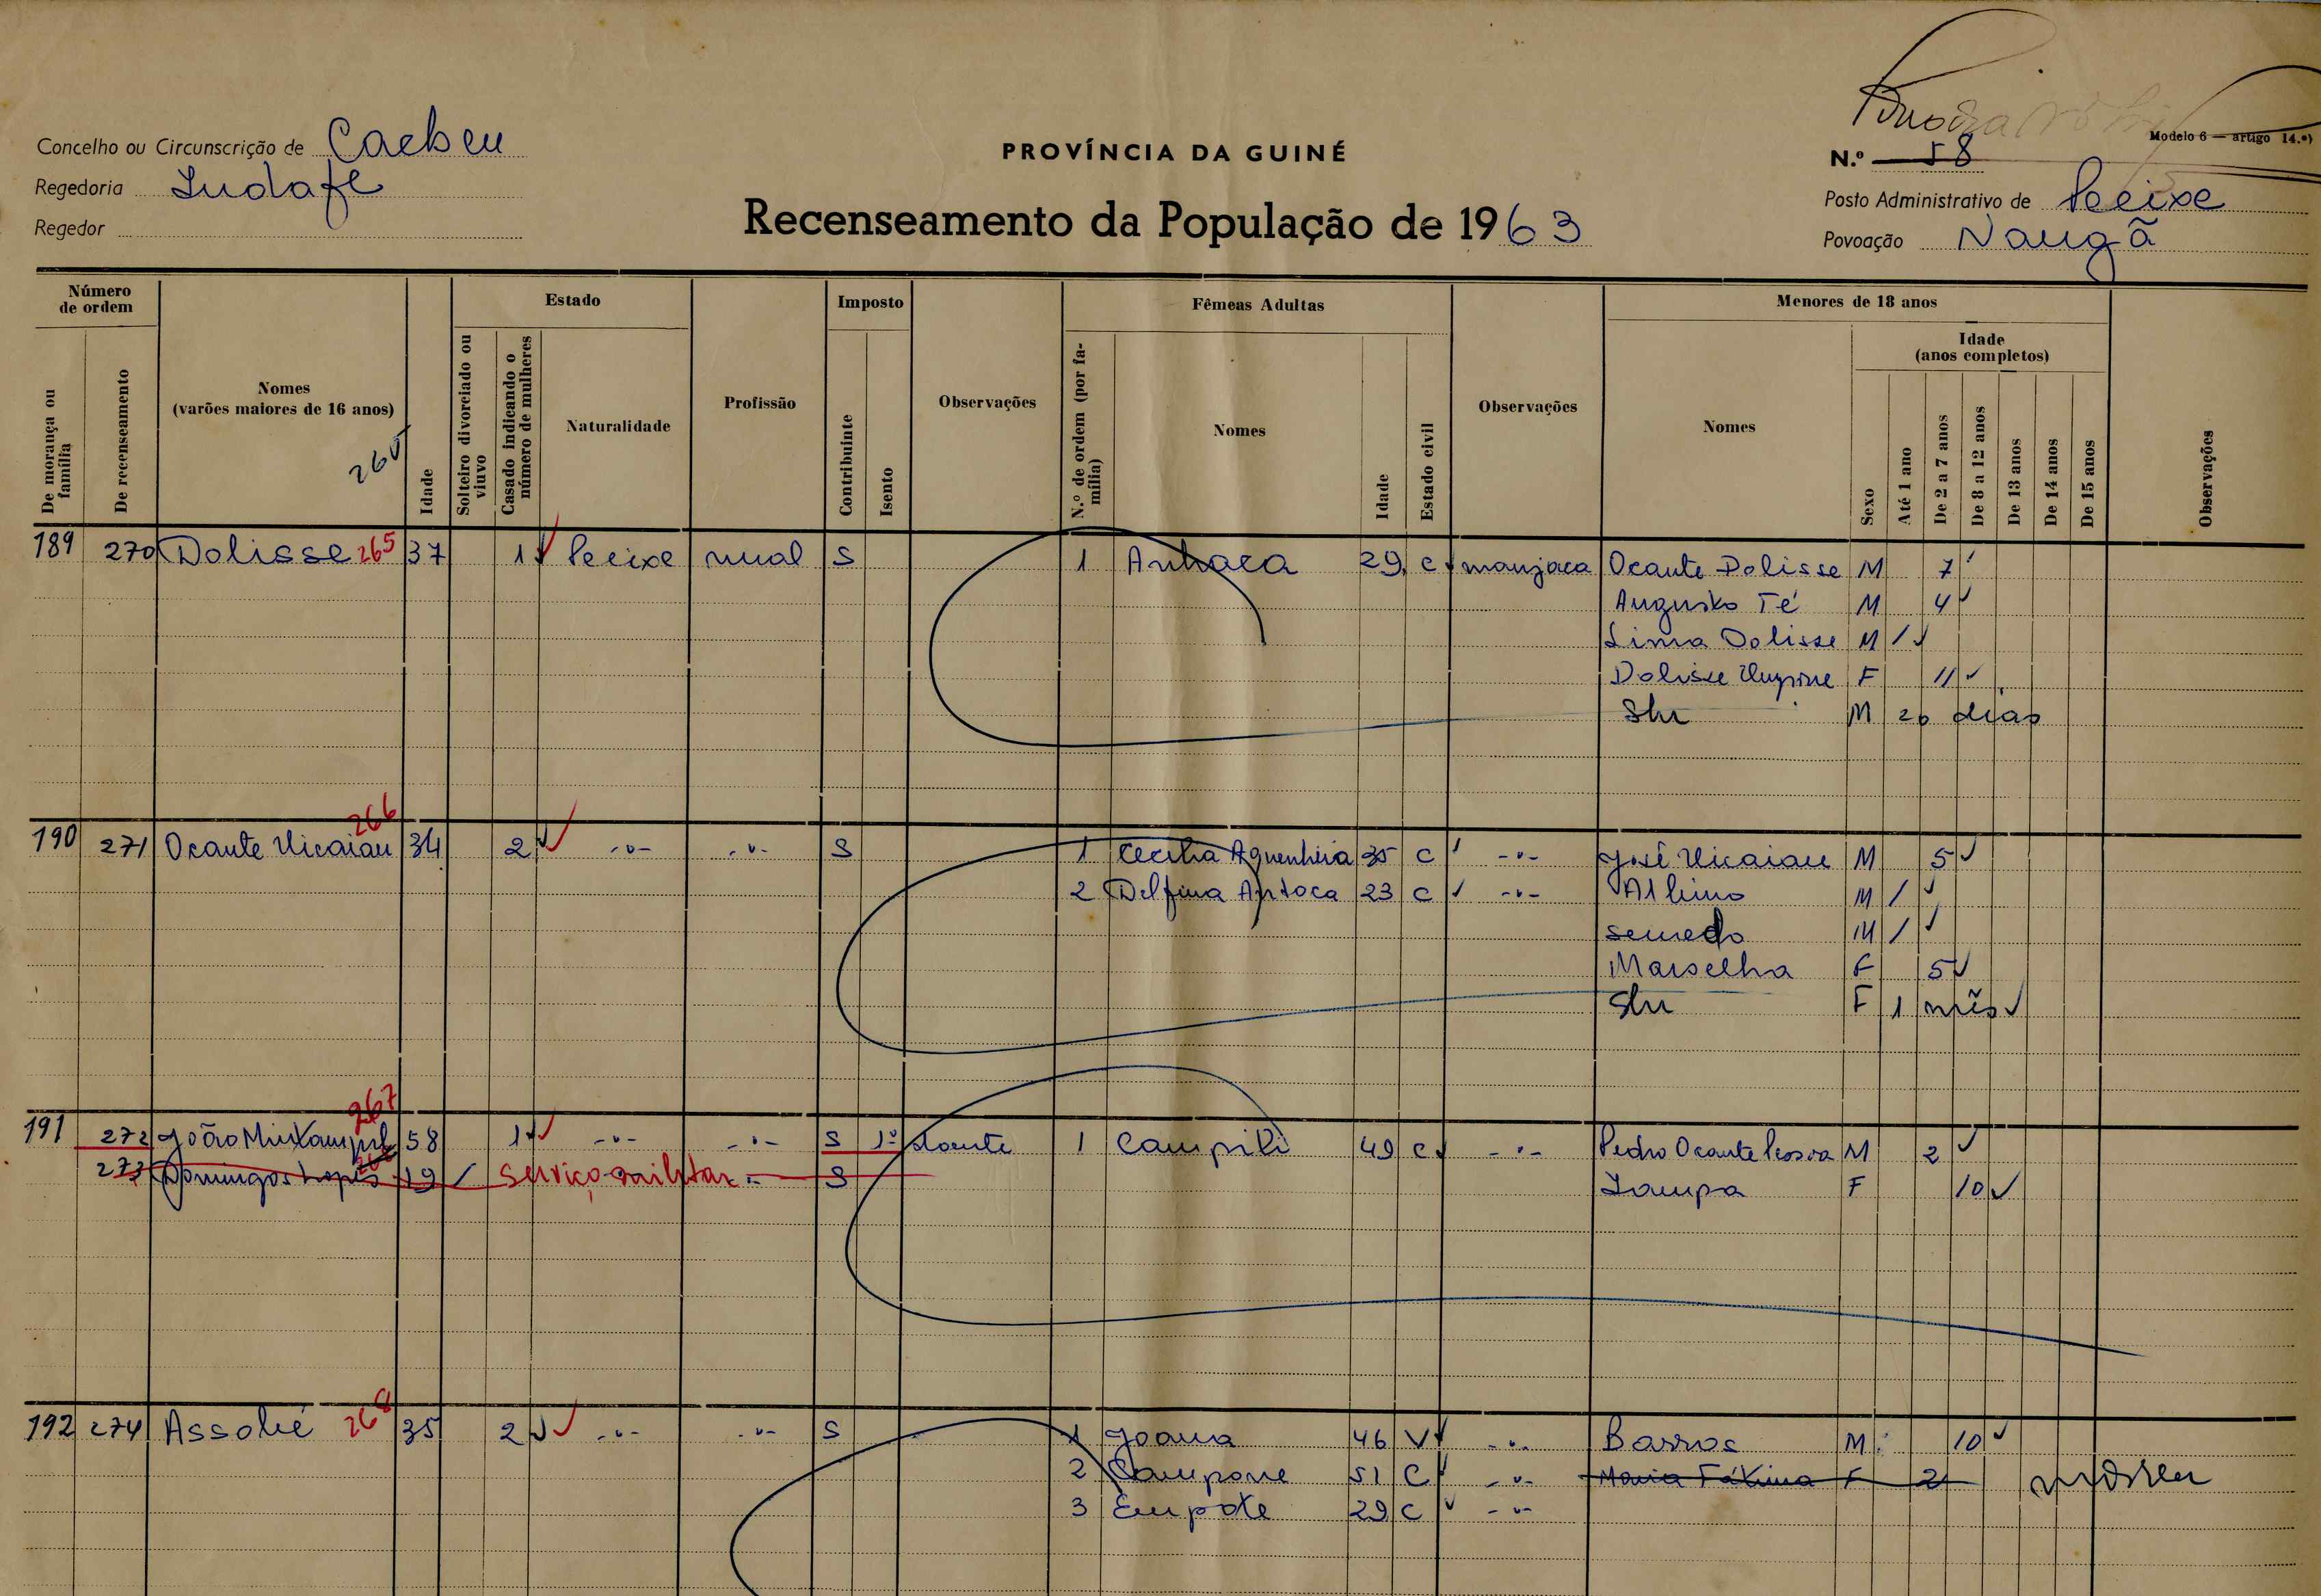 Modelo 6 — artigo 14.º)
Concelho ou Circunscrição de Cacheu
PROVÍNCIA DA GUINÉ
N.º 58
Regedoria
Posto Administrativo de Pecixe
Recenseamento da População de 1963
Regedor
Povoação Nangã
Número de ordem
Estado
Imposto
Fêmeas Adultas
Menores de 18 anos
Idade (anos completos)
De morança ou família
De recenseamento
Nomes (varões maiores de 16 anos)
265
Idade
Solteiro divorciado ou viuvo
Casado indicando o número de mulheres
Naturalidade
Profissão
Contribuinte
Isento
Observações
N.º de ordem (por família)
Nomes
Idade
Estado civil
Observações
Nomes
Sexo
Até 1 ano
De 2 a 7 anos
De 8 a 12 anos
De 13 anos
De 14 anos
De 15 anos
Observações
189 270 Dolisse 265 37 1 Pecixe rural S 1 29 C manjaca Ocante Dolisse M 7
Augusto Té M 4
Lima Dolisse M 1
Dolisse F 11
M 20 dias
266
190 271 Ocante Uicaiau 34 2 -"- -"- S 1 Cecilia 35 C -"- José Uicaiau M 5
2 Delfina Antoca 23 C -"- Albino M 1
Semedo M 1
Marselha F 5
F 1 mês
267
191 272 João 58 1 -"- -"- S 1º doente 1 Campili 49 C -"- Pedro Ocante Pessoa M 2
273 Domingos Lopes 19 serviço militar -"- S F 10
192 274 Assolié 268 35 2 -"- -"- S 1 Joana 46 V -"- Barros M 10
2 Campone 51 C -"- Maria Fátima F 2 morreu
3 Empote 29 C -"-